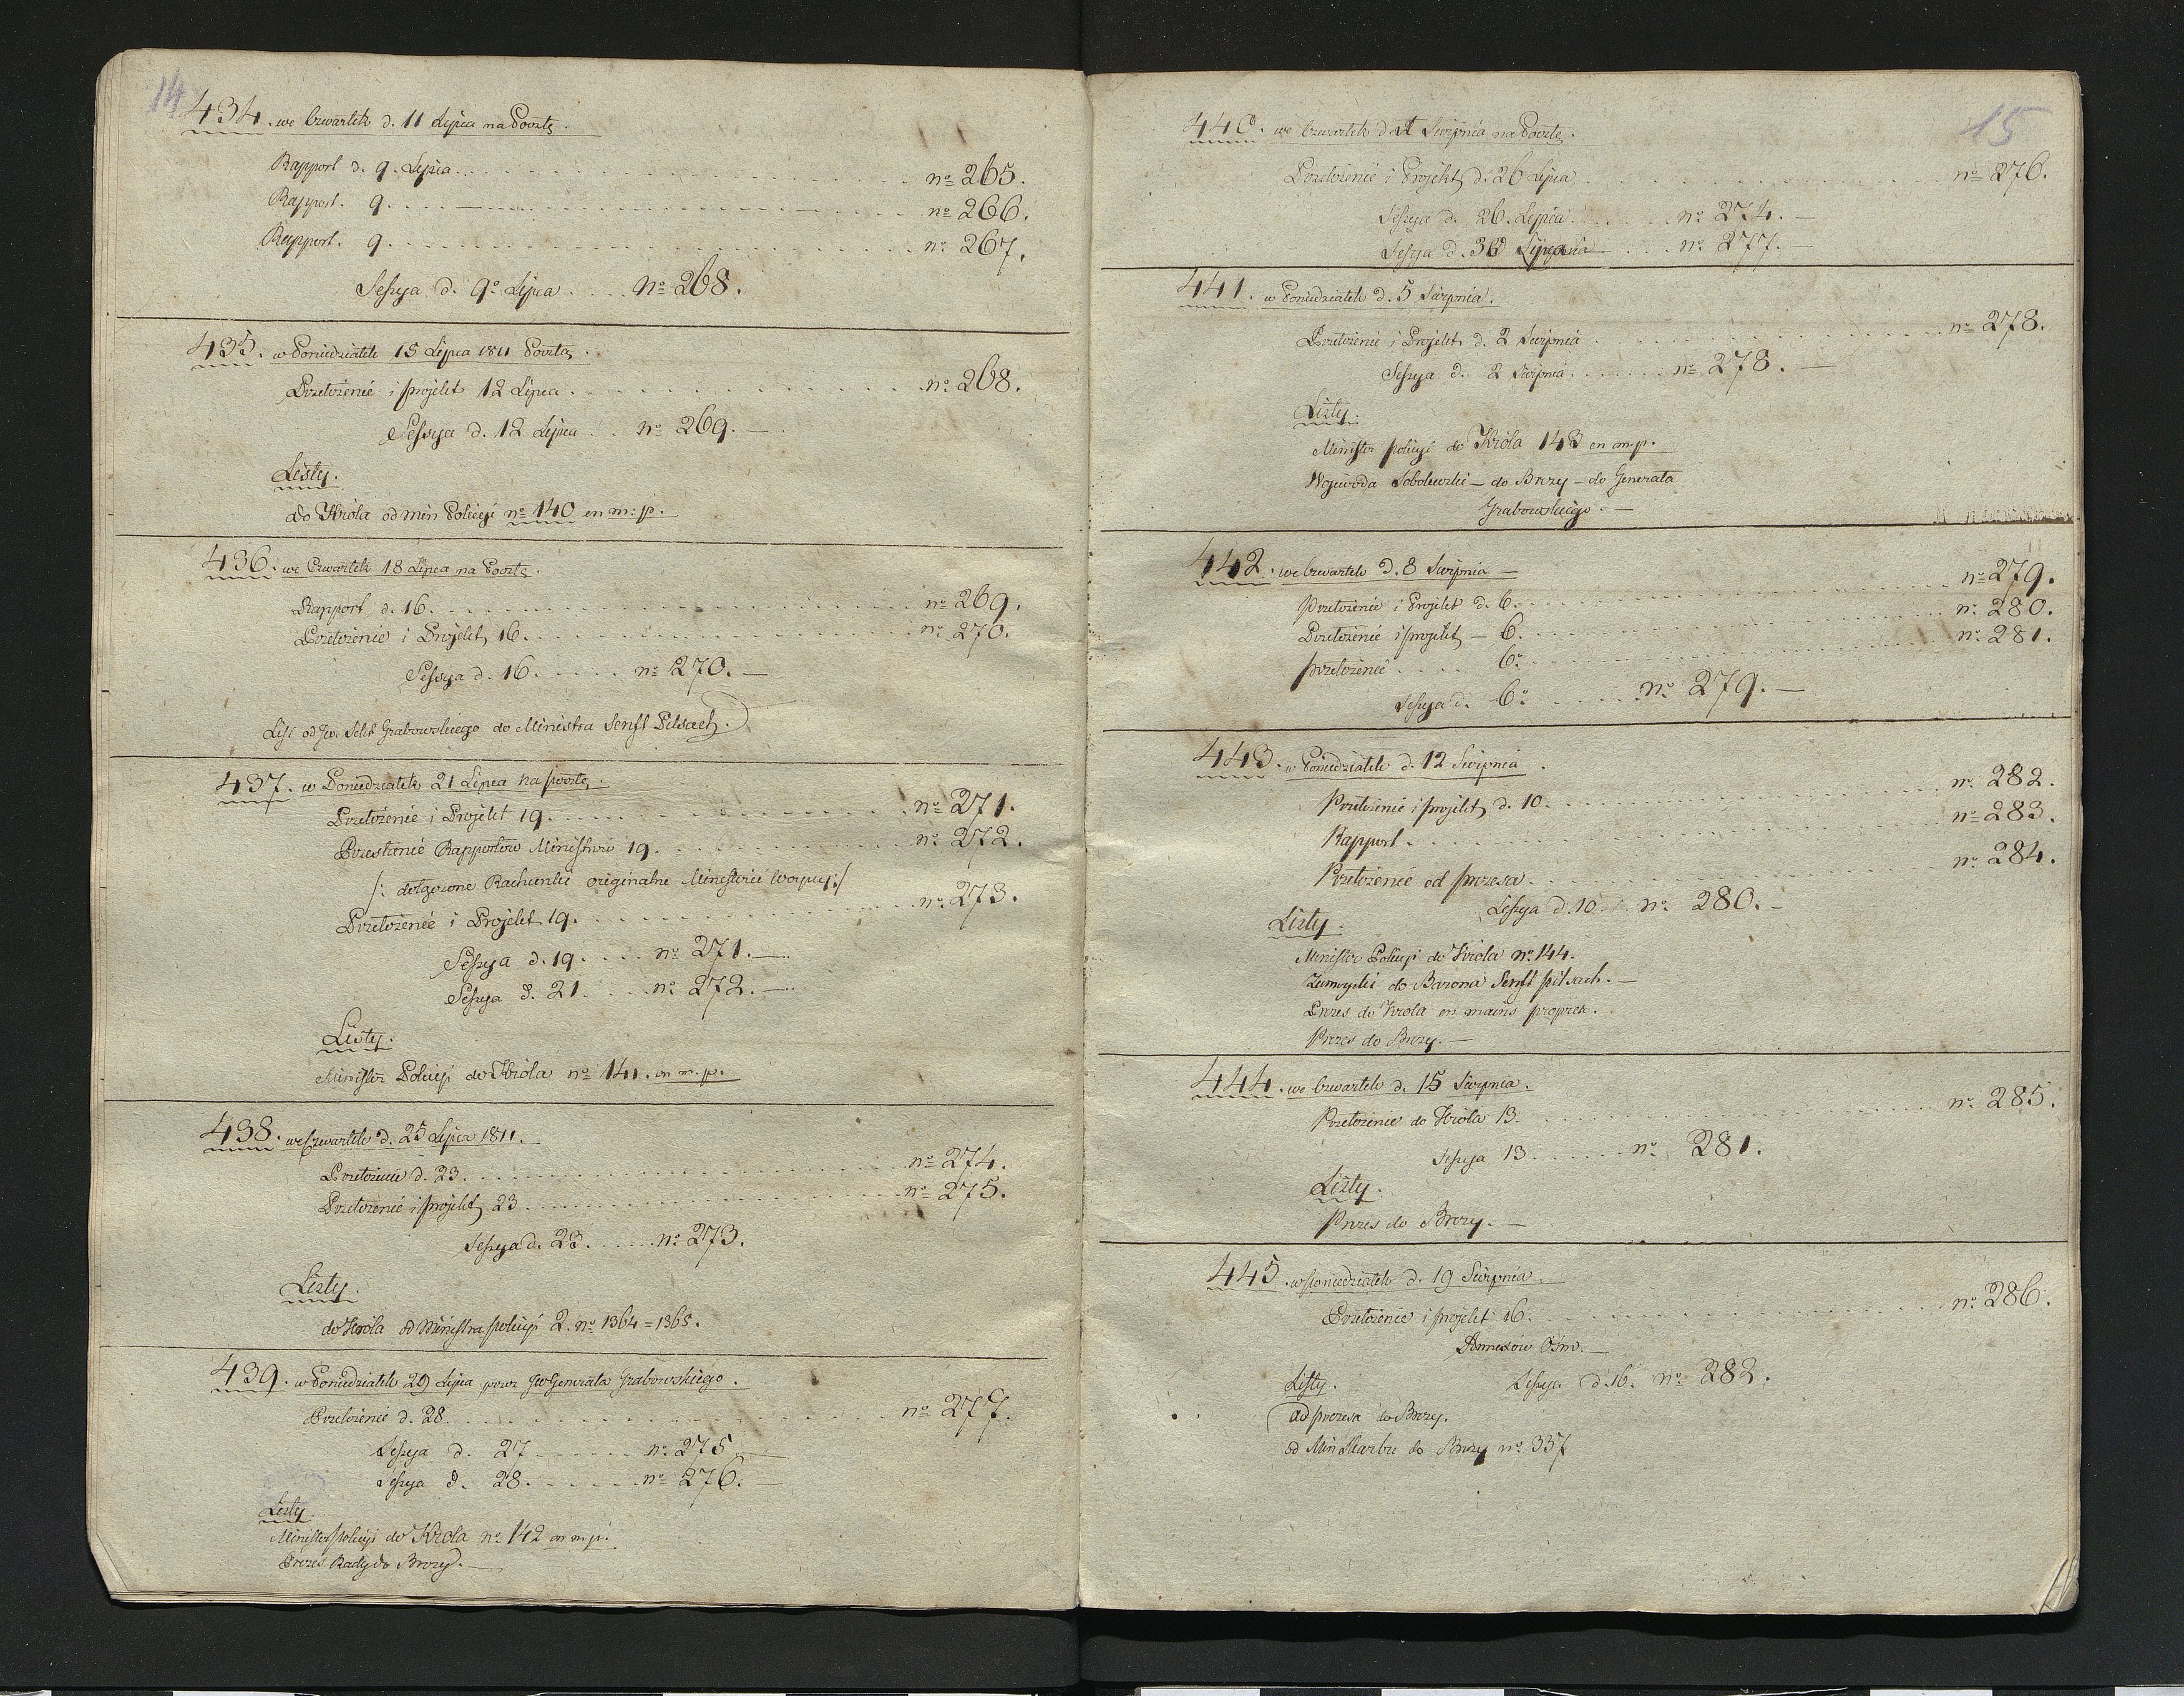 14
434. we Czwartek d. 11 Lipca na Pocztę.
Rapport d. 9. Lipca . . . nº 265.
Rapport. 9. . . . nº 266.
Rapport. 9. . . . nº 267.
Sessya d. 9º Lipca . . . . Nº 268.
435. w Poniedziałek 15 Lipca 1811 Pocztą.
Przełożenie i projekt 12 Lipca . . . nº 268.
Sessya d. 12 Lipca . . . nº 269. —
Listy.
do Króla od Min Policyi nº 140 en m: p.
436. we Czwartek 18 Lipca na Pocztę.
Rapport d. 16. . . . nº 269.
Przełożenie i Projekt 16. . . . nº 270.
Sessya d. 16. . . . . . nº 270. —
List od Jw. Sekt Grabowskiego do Ministra Senft Pilsach.
437. w Poniedziałek 21 Lipca na pocztę.
Przełożenie i Projekt 19. . . . nº 271.
Przesłanie Rapportow Ministrów 19. . . . nº 272.
/: dołączone Rachunki originalne Ministrowi Woyny :/
Przełożenie i Projekt 19. . . . nº 273.
Sessya d. 19. . . . . nº 271. —
Sessya d. 21. . . . nº 272. —
Listy.
Minister Policyi do Króla nº 141. en m. p.
438. we Czwartek d. 25 Lipca 1811.
Przełożenie d. 23. . . . nº 274.
Przełożenie i projekt 23 . . . nº 275.
Sessya d. 23. . . . . . nº 273.
Listy.
do Króla od Ministra policyi 2. nº 1364 = 1365.
439. w Poniedziałek 29 Lipca przez JW Generała Grabowskiego.
Przełożenie d. 28. . . . nº 277.
Sessya d. 27 . . . . . . nº 275 —
Sessya d. 28. . . . . . nº 276. —
Listy.
Minister policyi do Krola nº 142 en m. p.
Prezes Rady do Brezy. —
15
440. we Czwartek d 1 Sierpnia na Pocztę.
Przełożenie i Projekt d. 26 Lipca . . . nº 276.
Sessya d. 26. Lipca . . . . . nº 274. —
Sessya d. 30 Lipca . . . . nº 277. —
441. w Poniedziałek d. 5 Sierpnia.
Przełożenie i Projekt d. 2 Sierpnia . . . nº 278.
Sessya d. 2 Sierpnia . . . . . . nº 278. —
Listy.
Minister policyi do Króla 143 en m. p.
Wojewoda Sobolewski — do Brezy — do Generała
Grabowskiego. —
442. we Czwartek d. 8 Sierpnia —
Przełożenie i Projekt d. 6. . . . nº 279.
Przełożenie i projekt — 6. . . . nº 280.
przełożenie . . . . 6º . . . nº 281.
Sessya d. 6º . . . . . nº 279. —
443. w Poniedziałek d. 12 Sierpnia.
Przełożenie i projekt d. 10. . . . nº 282.
Rapport . . . nº 283.
Przełożenie od prezesa . . . nº 284.
Sessya d. 10 . . nº 280. —
Listy.
Minister Policyi do Króla nº 144.
Zamoyski do Barona Senft pilsach. —
Prezes do Krola en mains propres.
Prezes do Brezy. —
444. we Czwartek d. 15 Sierpnia.
Przełożenie do Króla 13. . . . nº 285.
Sessya 13 . . . . . . nº 281.
Listy.
Prezes do Brezy. —
445. w poniedziałek d. 19 Sierpnia.
Przełożenie i projekt 16. . . . nº 286.
Annexów Ośm. —
Listy. Sessya d. 16. nº 282.
Od prezesa do Brezy.
od Min Skarbu do Brezy nº 337